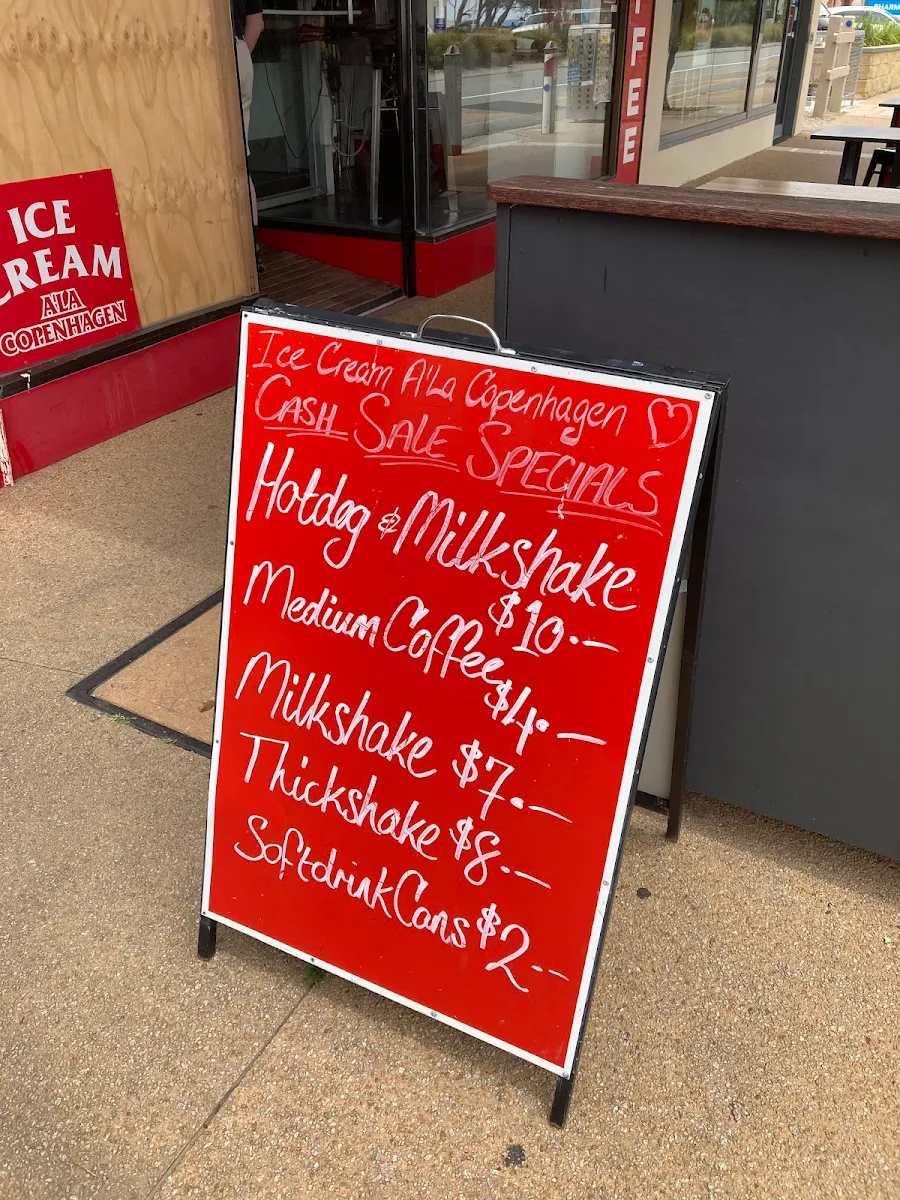 PHARM
FEE
ICE
CREAM
A'LA
COPENHAGEN
Ice Cream A'La Copenhagen
CASH SALE SPECIALS
Hotdog & Milkshake
$10.-
Medium Coffee
$4.-
Milkshake $7.-
Thickshake $8.-
Softdrink Cans $2.-